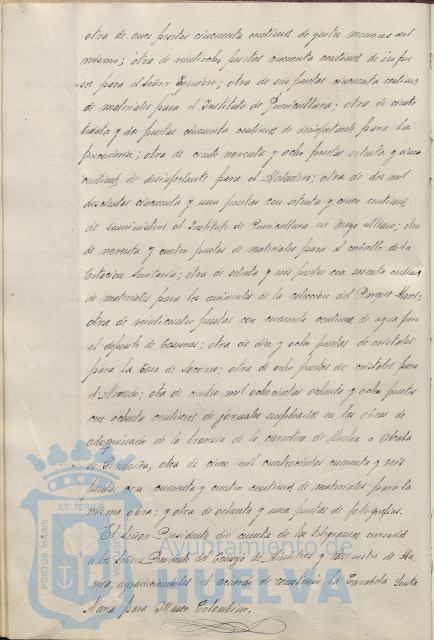 otra de once pesetas cincuenta centimos de gastos menores del
mismo; otra de veintiocho pesetas cincuenta centimos de impre
sos para el Señor; otra de seis pesetas cincuenta centimos
de materiales para el Instituto de Puericultura; otra de ciento
treinta y dos pesetas cincuenta centimos de desinfectante para la
pescaderia; otra de ciento noventa y ocho pesetas setenta y cinco
centimos de desinfectante para el Matadero; otra de dos mil
doscientas cincuenta y una pesetas con setenta y cinco centimos
de suministros al Instituto de Puericultura en Mayo ultimo; otra
de noventa y cuatro pesetas de materiales para el caballo de la
Estacion Sanitaria; otra de setenta y seis pesetas con sesenta centimos
de materiales para los animales de la coleccion del Parque Moret;
otra de veinticuatro pesetas con cuarenta centimos de agua para
el deposito de basuras; otra de diez y ocho pesetas de cristales
para la Casa de Socorro; otra de ocho pesetas de cristales para
el Mercado; otra de cuatro mil ochocientas ochenta y ocho pesetas
con ochenta centimos de jornales empleados en las obras de
adoquinado de la travesia de la carretera de Huelva a Alcala
de Guadaira, otra de cinco mil cuatrocientas cuarenta y seis
pesetas con cuarenta y cuatro centimos de materiales para la
misma obra; y otra de ochenta y una pesetas de fotografias.
El Señor Presidente dio cuenta de los telegramas cursados
a los Señores Presidente del Consejo de Ministros y Ministro de Ma
rina, agradeciendoles el acuerdo de construir la Carabela Santa
Maria para Museo Colombino.
PORTUS MARIS
ET TERRAE
Ayuntamiento de
HUELVA